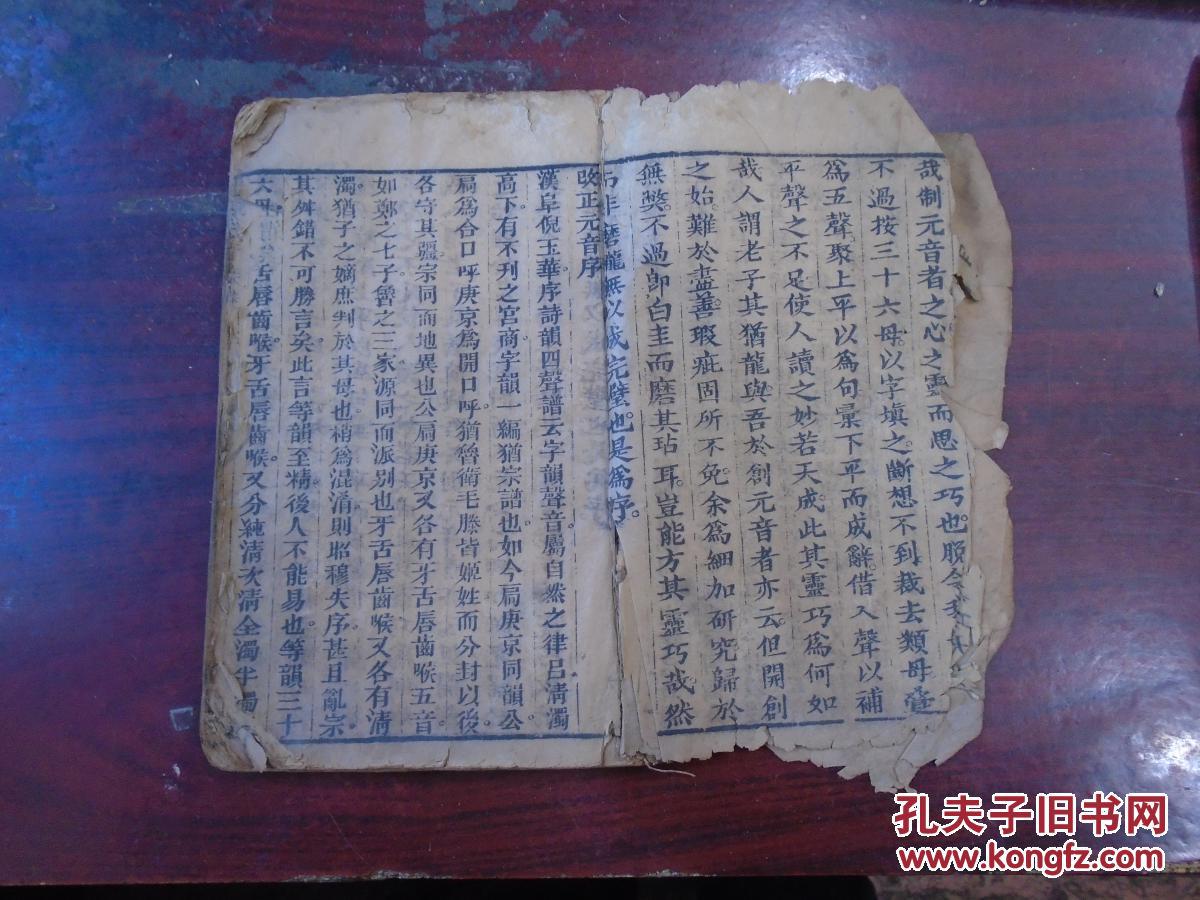 哉制元音者之心之靈而思之巧也
不過按三十六母以字填之斷想不到裁去類母疊
爲五聲聚上平以爲句彙下平而成辭借入聲以補
平聲之不足使人讀之妙若天成此其靈巧爲何如
哉人謂老子其猶龍與吾於創元音者亦云但開創
之始難於盡善瑕疵固所不免余爲細加研究歸於
無獘不過卽白圭而磨其玷耳豈能方其靈巧哉然
磨礲無以成完璧也是爲序
改正元音序
漢阜倪玉華序詩韻四聲譜云字韻聲音屬自然之律呂淸濁
高下有不刊之宮商字韻一編猶宗譜也如今扃庚京同韻公
扃爲合口呼庚京爲開口呼猶魯衛毛滕皆姬姓而分封以後
各守其疆宗同而地異也公扃庚京又各有牙舌唇齒喉五音
如鄭之七子魯之三家源同而派別也牙舌唇齒喉又各有淸
濁猶子之嫡庶判於其母也稍爲混淆則昭穆失序甚且亂宗
其舛錯不可勝言矣此言等韻至精後人不能易也等韻三十
六母舌唇齒喉牙舌唇齒喉又分純淸次淸全濁半濁
孔夫子旧书网
www.kongfz.com